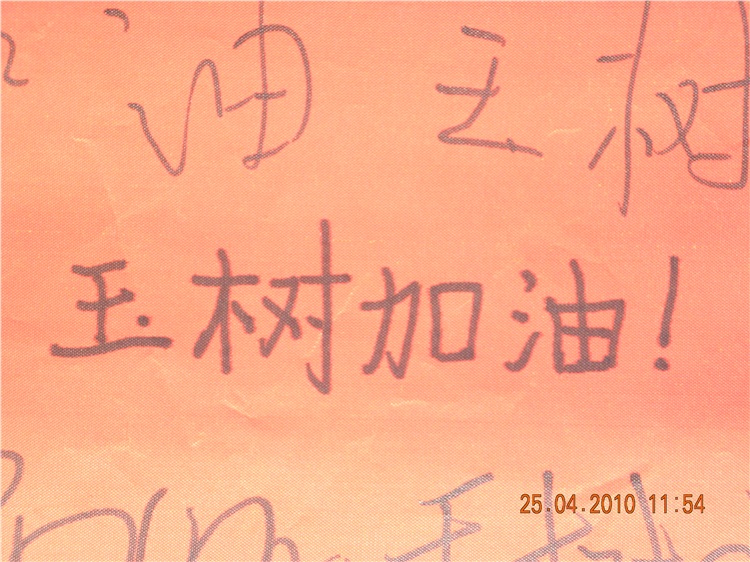 油 玉树
玉树加油!
玉树
25.04.2010 11:54